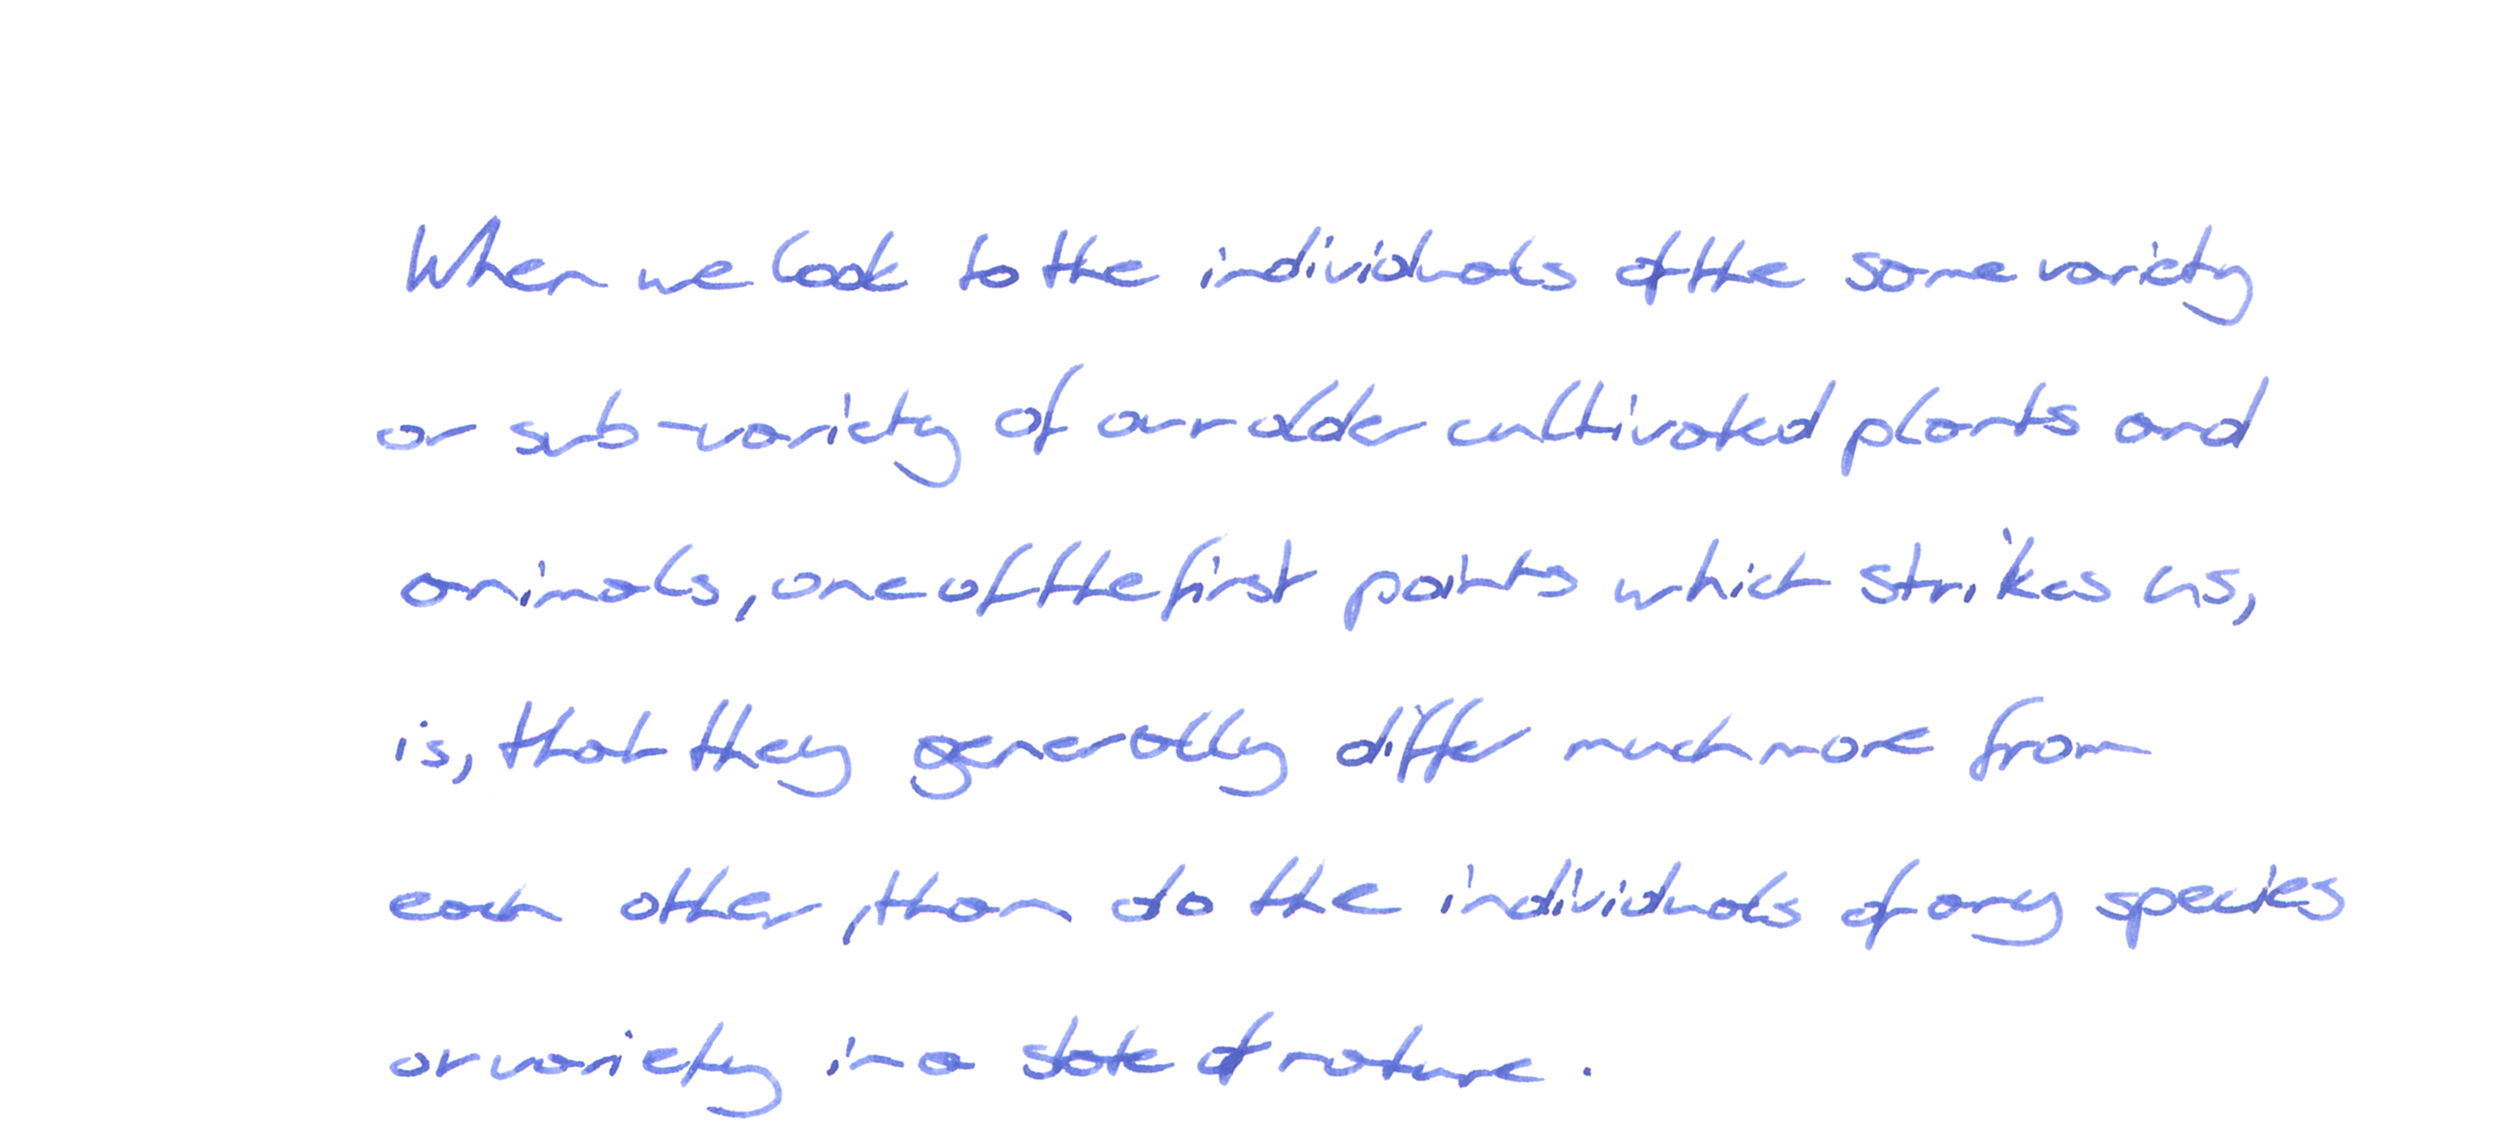 When we look to the individuals of the same variety
or sub-variety of our older cultivated plants and
animals, one of the first points which strikes us,
is, that they generally differ much more from
each other, than do the individuals of any species
or variety in a state of nature.